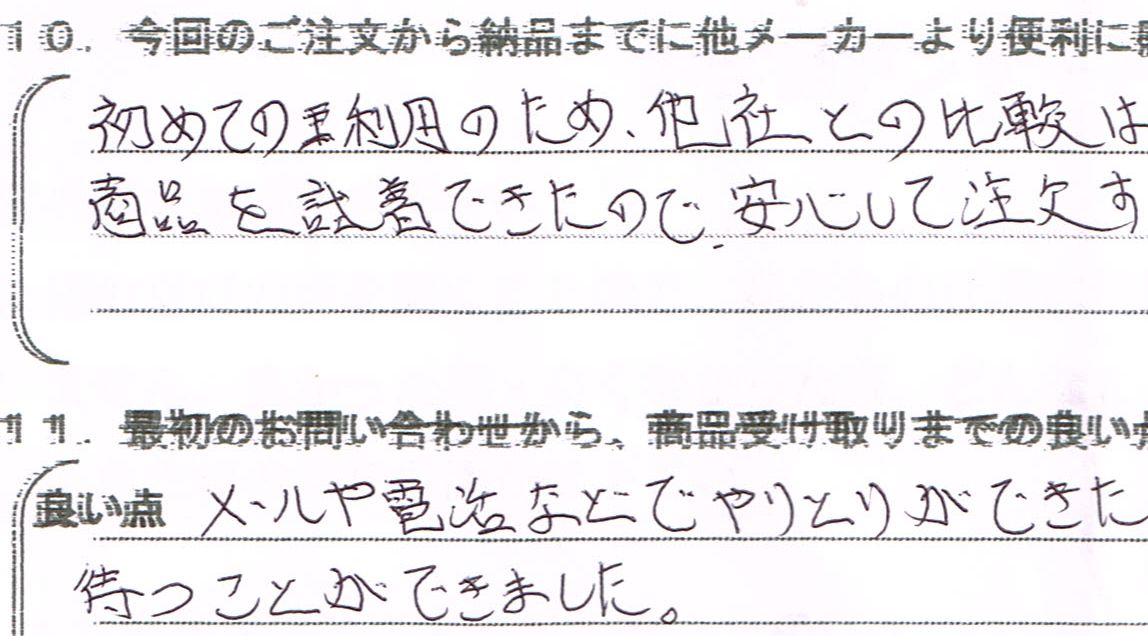 10．今回のご注文から納品までに他メーカーより便利に
初めての利用のため、他社との比較は
商品を試着できたので、安心して注文す
11．最初のお問い合わせから、商品受け取りまでの良い
良い点 メールや電話などでやりとりができた
待つことができました。